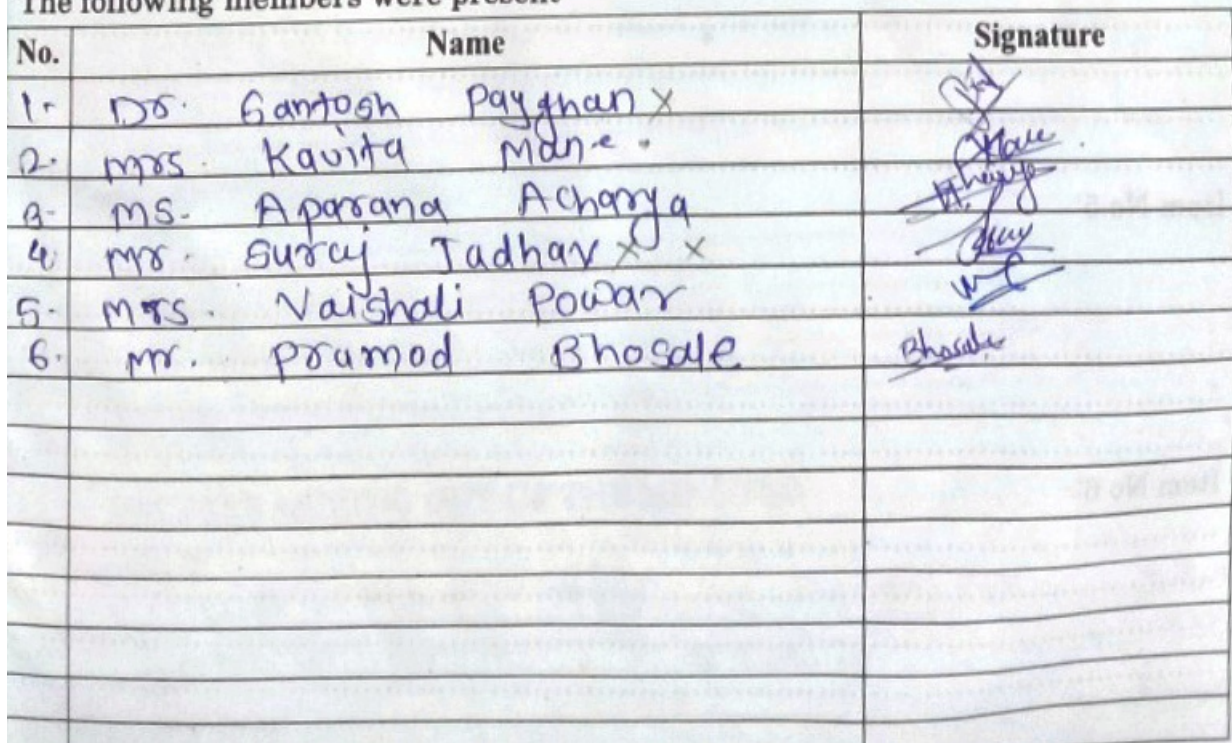 The following members were present
No. Name Signature
1. Dr. Santosh Payghan X
2. Mrs. Kavita Mane
3. Ms. Aparana Acharya
4. Mr. Suraj Jadhav X X
5. Mrs Vaishali Powar
6. Mr. Pramod Bhosale Bhosale